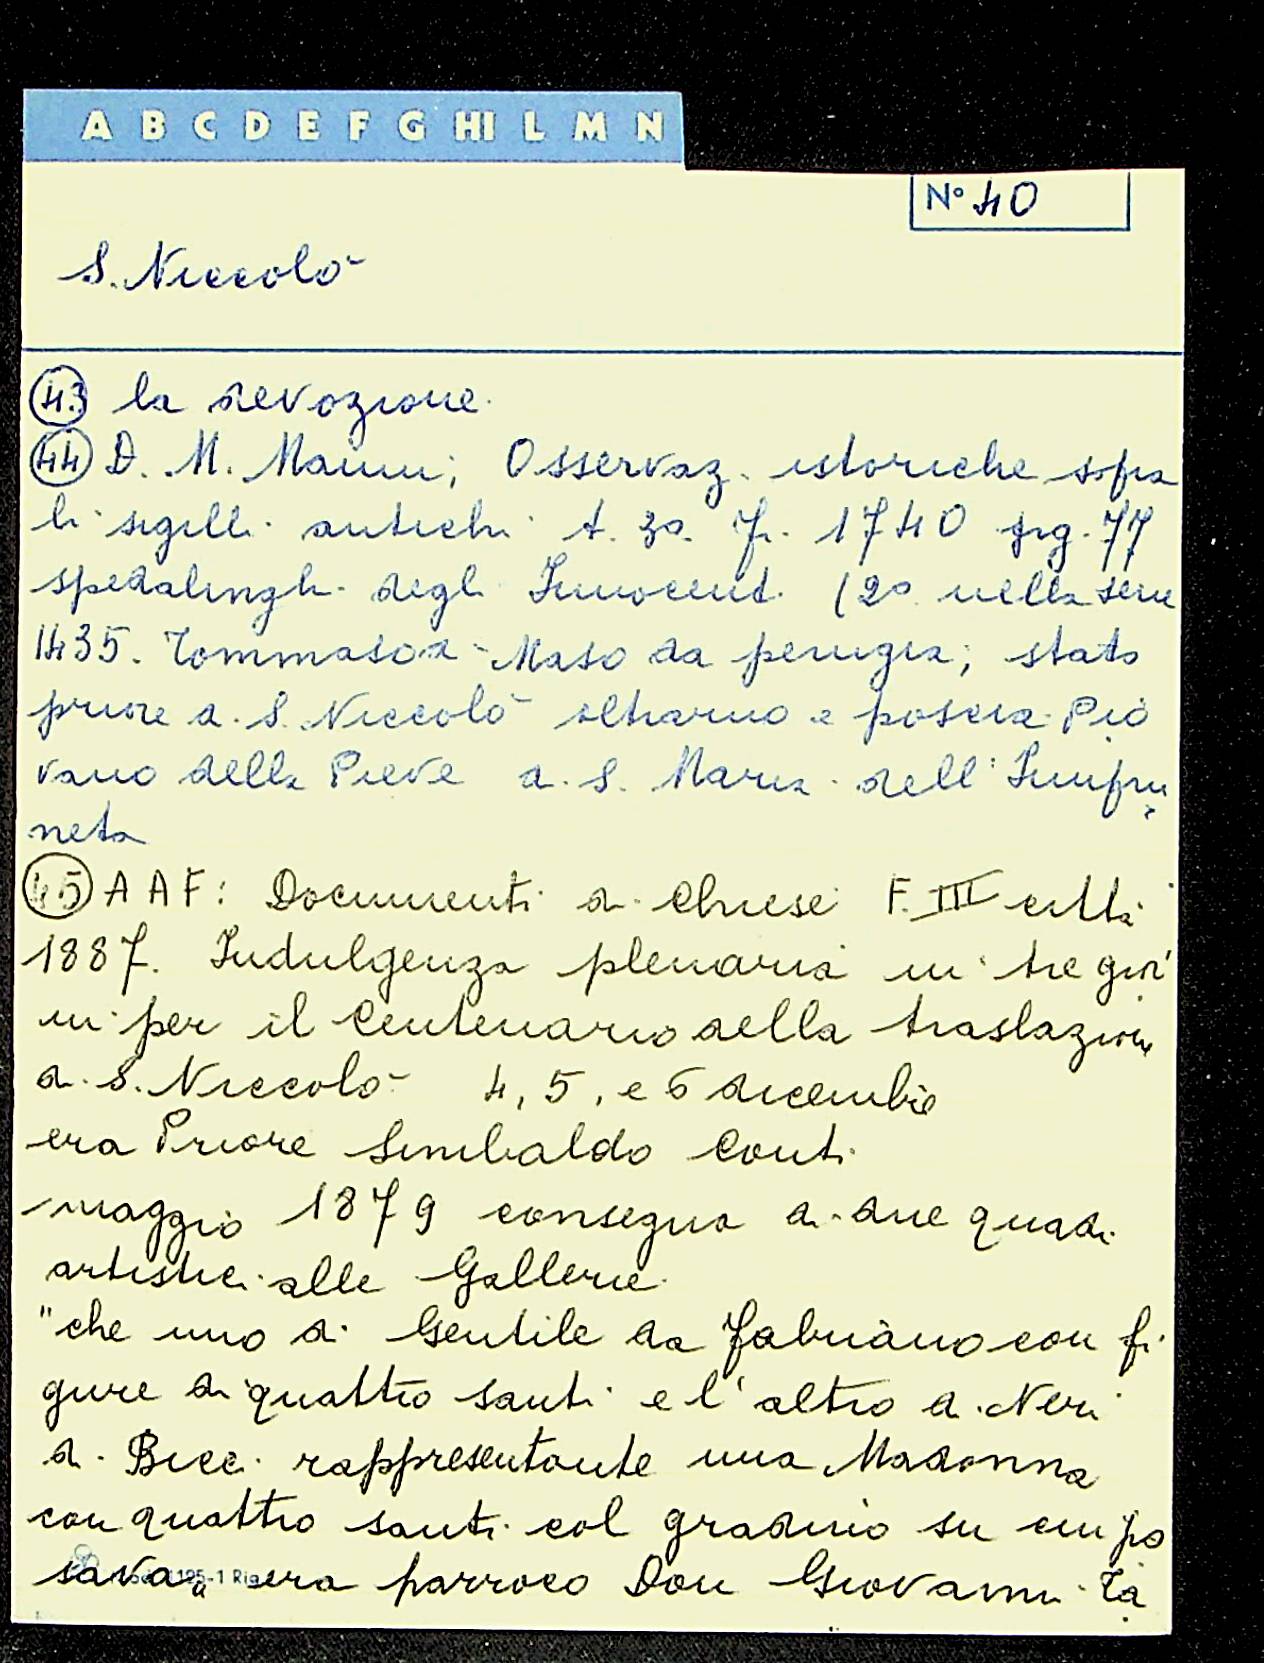 A B C D E F G HI L M N
Nº 40
S. Niccolò
43 la devozione.
44 D. M. Manni; Osservaz. istoriche sopra
li sigilli antichi t. 3º. f. 1740 pag. 77
spedalingh. degl. Innocenti. (2º nella serie
1435. Tommaso Maso da perugia; stato
priore di S. Niccolò oltrarno e poscia Pio
vano della Pieve di S. Maria dell'Impru
neta
45 A A F: Documenti di Chiese F. III città
1887. Indulgenza plenaria in tre gior
ni per il Centenario della traslazione
di S. Niccolò 4, 5, e 6 dicembre
era Priore Sinibaldo Conti
maggio 1879 consegna di due quadri
artistici alle Gallerie
"che uno di Gentile da Fabriano con fi
gure di quattro santi e l'altro di Neri
di Bicci rappresentante una Madonna
con quattro santi col gradino su cui po
sava" era parroco Don Giovanni Ta
1195-1